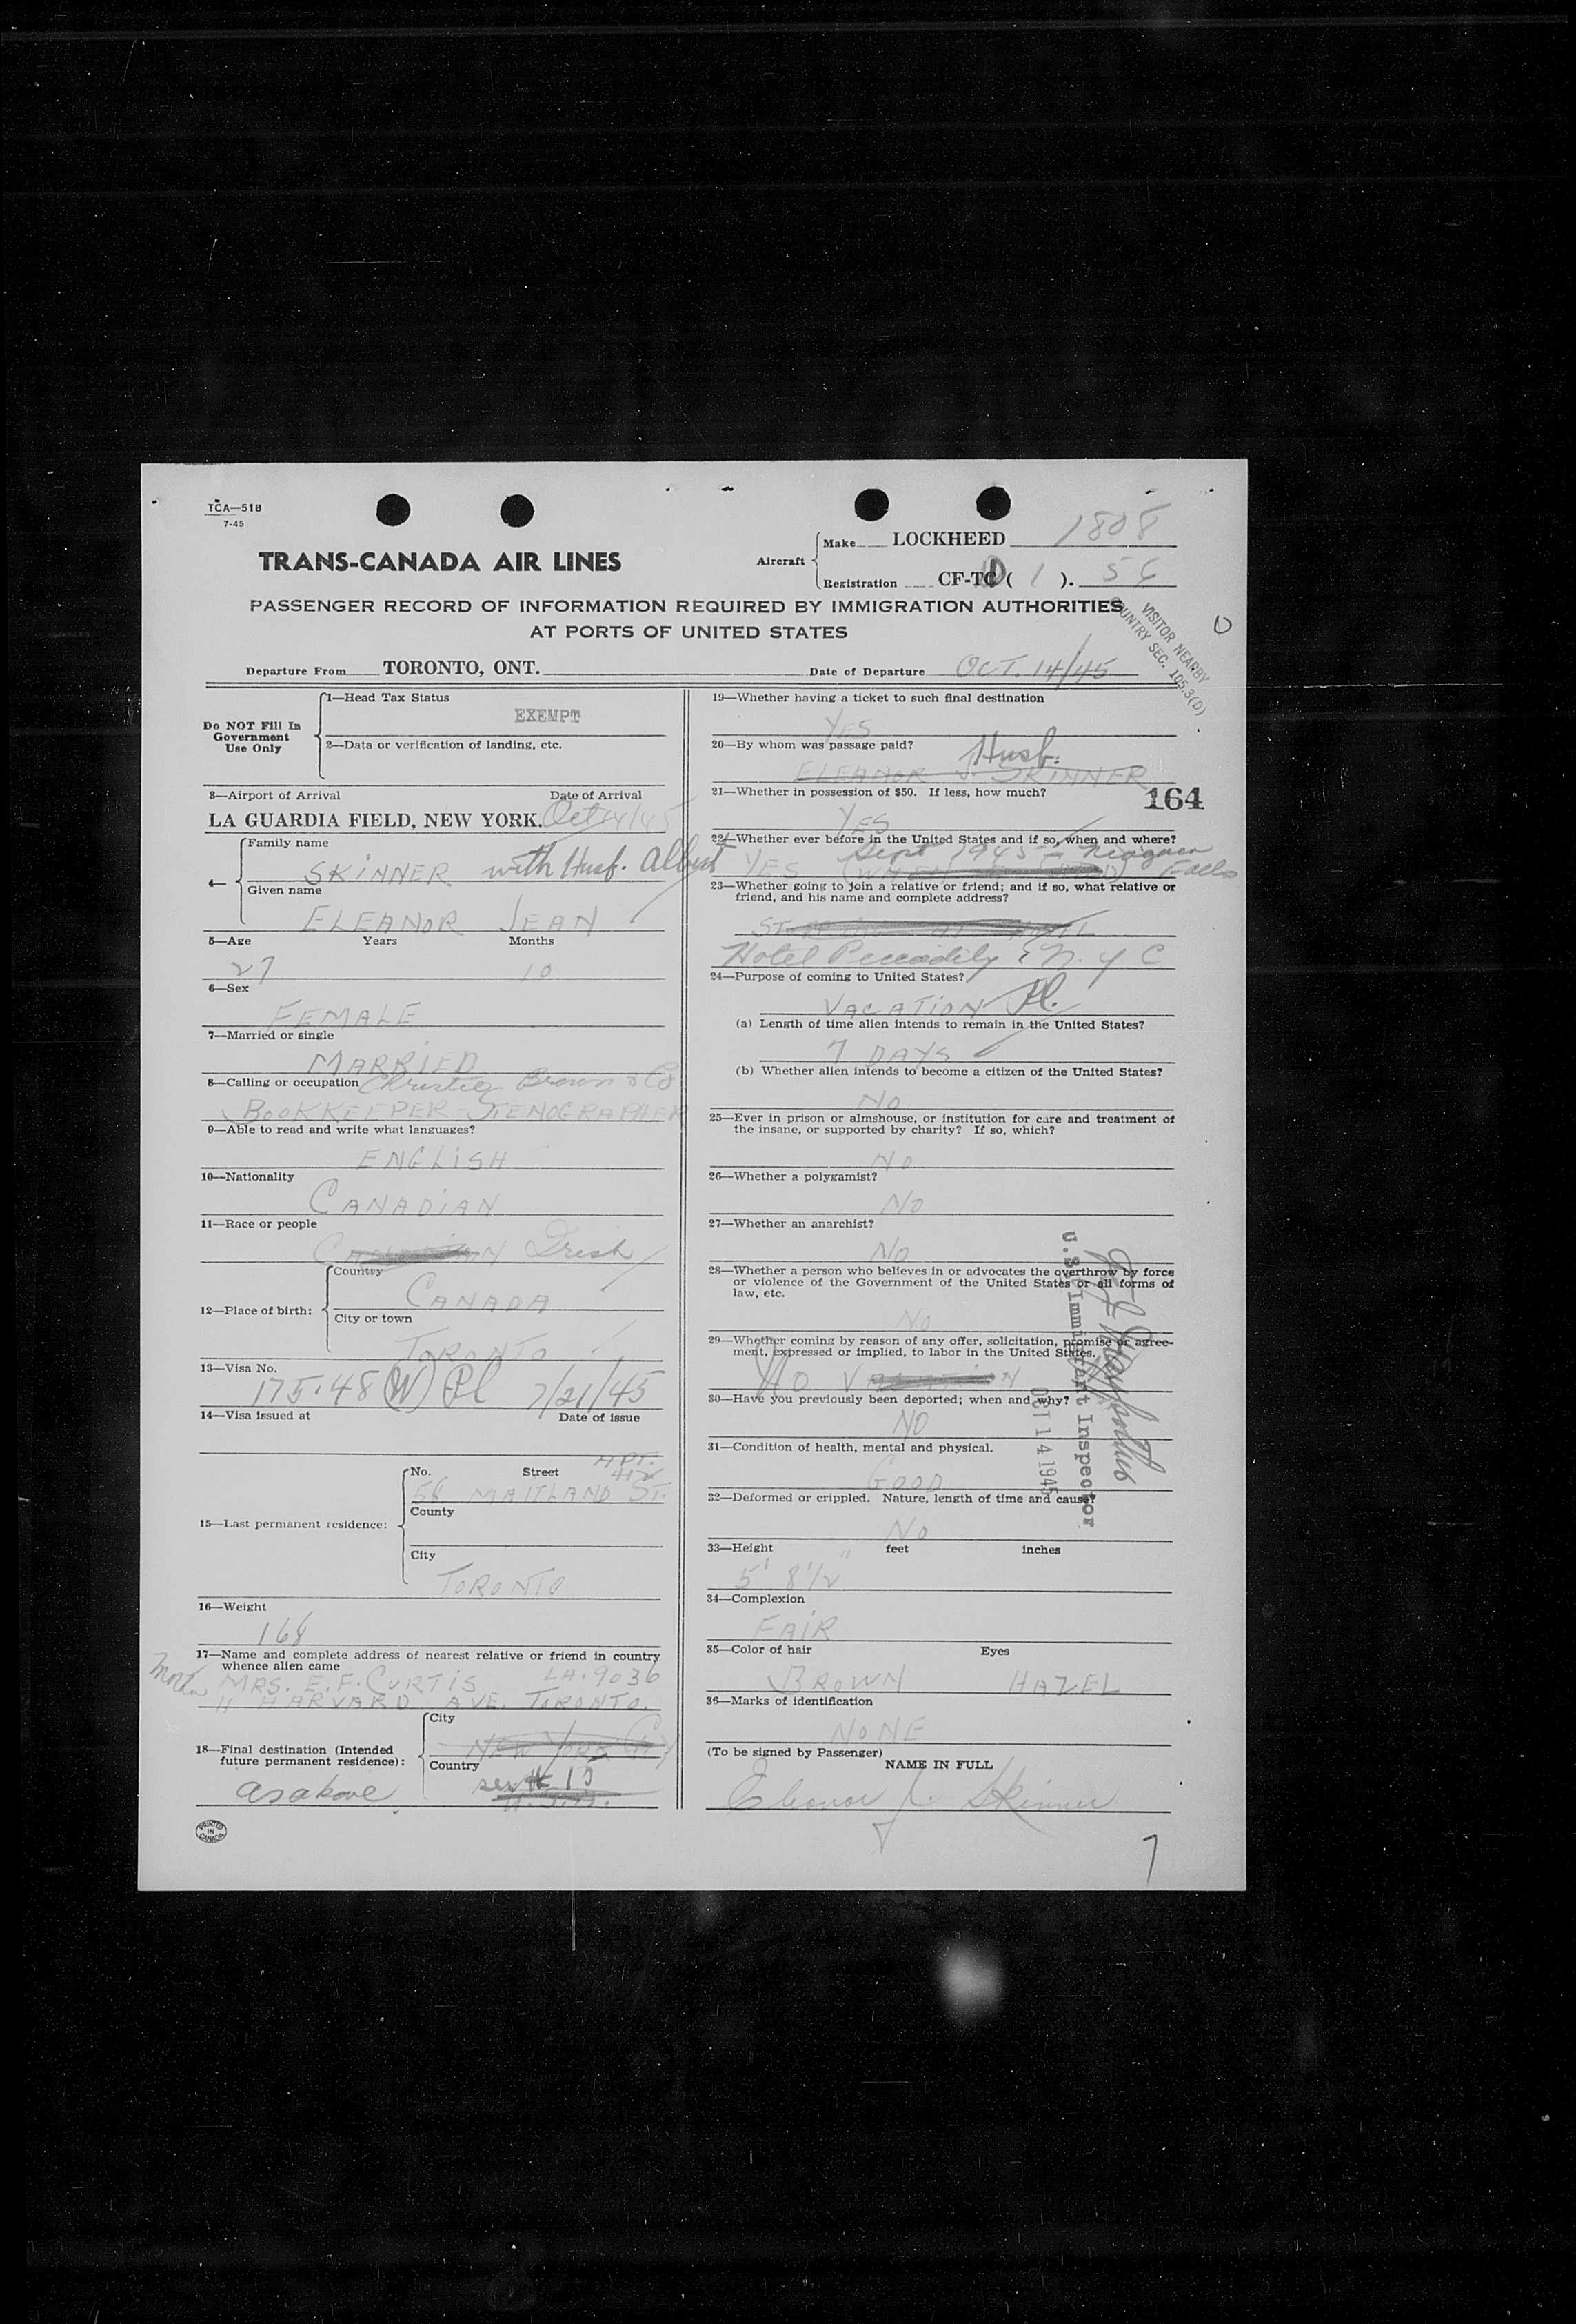 TCA—518
7-45
TRANS-CANADA AIR LINES
Aircraft
Make LOCKHEED 1808
Registration CF-TC ( 1 ). 56
PASSENGER RECORD OF INFORMATION REQUIRED BY IMMIGRATION AUTHORITIES
AT PORTS OF UNITED STATES
VISITOR NEARBY
COUNTRY SEC. 105.3(D)
Departure From TORONTO, ONT. Date of Departure OCT. 14/45
Do NOT Fill In
Government
Use Only
1—Head Tax Status
EXEMPT
2—Data or verification of landing, etc.
3—Airport of Arrival Date of Arrival
LA GUARDIA FIELD, NEW YORK. Oct 14/45
4—
Family name
SKINNER with Husb. Albert
Given name
ELEANOR JEAN
5—Age Years Months
27 10
6—Sex
FEMALE
7—Married or single
MARRIED
8—Calling or occupation Christie Brown & Co
BOOKKEEPER-STENOGRAPHER
9—Able to read and write what languages?
ENGLISH
10—Nationality
CANADIAN
11—Race or people
Irish
12—Place of birth:
Country
CANADA
City or town
TORONTO
13—Visa No.
175.48 (W) Pl 7/21/45
14—Visa issued at Date of issue
15—Last permanent residence:
No. Street APT. 412
58 MAITLAND ST.
County
City
TORONTO
16—Weight
168
17—Name and complete address of nearest relative or friend in country
whence alien came
Mother MRS. E. F. CURTIS LA. 9036
11 HARVARD AVE. TORONTO.
18—Final destination (Intended
future permanent residence):
City
NEW YORK CITY
Country
see # 15
as above
PRINTED
IN
CANADA
19—Whether having a ticket to such final destination
YES
20—By whom was passage paid? Husb.
ELEANOR J. SKINNER
21—Whether in possession of $50. If less, how much?
164
YES
22—Whether ever before in the United States and if so, when and where?
YES Sept 1945 - Niagara Falls
23—Whether going to join a relative or friend; and if so, what relative or
friend, and his name and complete address?
Hotel Piccadily, N. Y C
24—Purpose of coming to United States?
VACATION Pl.
(a) Length of time alien intends to remain in the United States?
7 DAYS
(b) Whether alien intends to become a citizen of the United States?
NO
25—Ever in prison or almshouse, or institution for care and treatment of
the insane, or supported by charity? If so, which?
NO
26—Whether a polygamist?
NO
27—Whether an anarchist?
NO
28—Whether a person who believes in or advocates the overthrow by force
or violence of the Government of the United States or all forms of
law, etc.
NO
29—Whether coming by reason of any offer, solicitation, promise or agree-
ment, expressed or implied, to labor in the United States.
No
30—Have you previously been deported; when and why?
NO
31—Condition of health, mental and physical.
GOOD
32—Deformed or crippled. Nature, length of time and cause?
NO
33—Height feet inches
5' 8 1/2"
34—Complexion
FAIR
35—Color of hair Eyes
BROWN HAZEL
36—Marks of identification
NONE
(To be signed by Passenger)
NAME IN FULL
Eleanor J. Skinner
U.S. Immigrant Inspector
OCT 14 1945
7